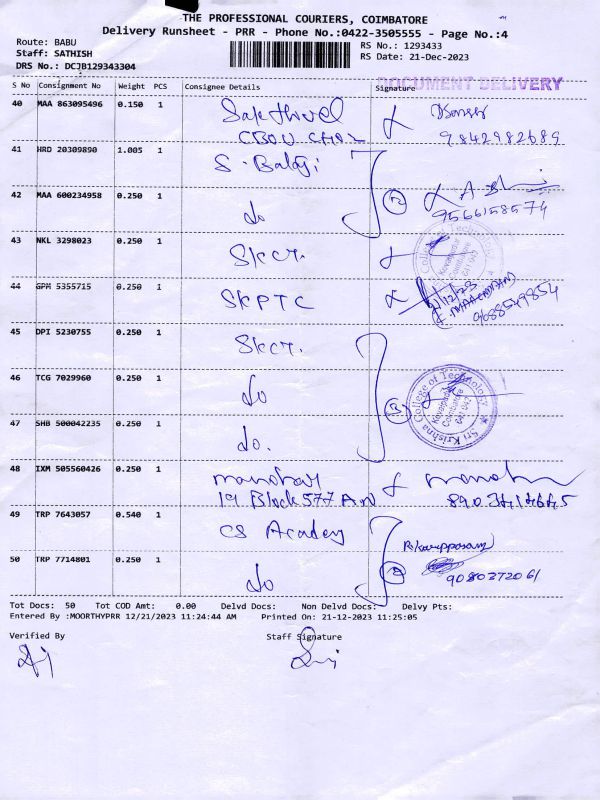 THE PROFESSIONAL COURIERS, COIMBATORE
Delivery Runsheet - PRR - Phone No.:0422-3505555 - Page No.:4
Route: BABU
Staff: SATHISH
DRS No.: DCJB129343304
RS No.: 1293433
RS Date: 21-Dec-2023
DOCUMENT DELIVERY
S No Consignment No Weight PCS Consignee Details Signature
40 MAA 863095496 0.150 1 Sakthivel
9842982689
41 HRD 20309890 1.005 1 S. Balaji
42 MAA 600234958 0.250 1 do
9566158574
43 NKL 3298023 0.250 1 SKCT.
44 GPM 5355715 0.250 1 SKPTC
9688529854
45 DPI 5230755 0.250 1 SKCT.
46 TCG 7029960 0.250 1 do
Sri Krishna College of Technology
Kovaipudur
Coimbatore
641 042
47 SHB 500042235 0.250 1 do.
48 IXM 505560426 0.250 1 manohar
19 Block 577 AN
49 TRP 7643057 0.540 1 CS Academy
R. Karuppasamy
50 TRP 7714801 0.250 1 do
9080372061
Tot Docs: 50 Tot COD Amt: 0.00 Delvd Docs: Non Delvd Docs: Delvy Pts:
Entered By :MOORTHYPRR 12/21/2023 11:24:44 AM Printed On: 21-12-2023 11:25:05
Verified By Staff Signature